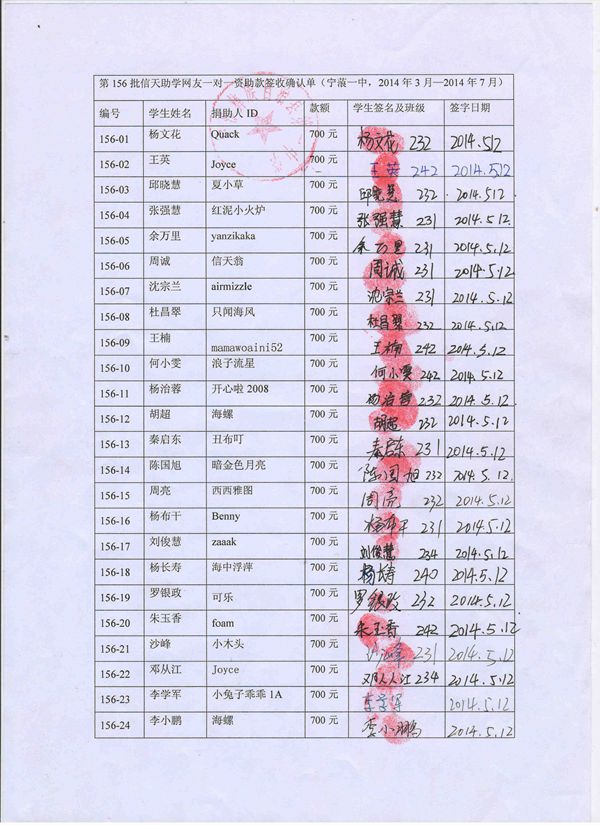 第 156 批信天助学网友一对一资助款签收确认单（宁蒗一中，2014 年 3 月—2014 年 7 月）
编号 学生姓名 捐助人 ID 款额 学生签名及班级 签字日期
156-01 杨文花 Quack 700 元 杨文花 232 2014.5.12
156-02 王英 Joyce 700 元 王英 242 2014.5.12
156-03 邱晓慧 夏小草 700 元 邱晓慧 232 2014.5.12
156-04 张强慧 红泥小火炉 700 元 张强慧 231 2014.5.12
156-05 余万里 yanzikaka 700 元 余万里 231 2014.5.12
156-06 周诚 信天翁 700 元 周诚 231 2014.5.12
156-07 沈宗兰 airmizzle 700 元 沈宗兰 231 2014.5.12
156-08 杜昌翠 只闻海风 700 元 杜昌翠 232 2014.5.12
156-09 王楠 mamawoaini52 700 元 王楠 242 2014.5.12
156-10 何小雯 浪子流星 700 元 何小雯 242 2014.5.12
156-11 杨治蓉 开心啦 2008 700 元 杨治蓉 232 2014.5.12
156-12 胡超 海螺 700 元 胡超 232 2014.5.12
156-13 秦启东 丑布叮 700 元 秦启东 231 2014.5.12
156-14 陈国旭 暗金色月亮 700 元 陈国旭 232 2014.5.12
156-15 周亮 西西雅图 700 元 周亮 232 2014.5.12
156-16 杨布干 Benny 700 元 杨布干 231 2014.5.12
156-17 刘俊慧 zaaak 700 元 刘俊慧 234 2014.5.12
156-18 杨长寿 海中浮萍 700 元 杨长寿 240 2014.5.12
156-19 罗银政 可乐 700 元 罗银政 232 2014.5.12
156-20 朱玉香 foam 700 元 朱玉香 242 2014.5.12
156-21 沙峰 小木头 700 元 沙峰 231 2014.5.12
156-22 邓从江 Joyce 700 元 邓从江 234 2014.5.12
156-23 李学军 小兔子乖乖 1A 700 元 2014.5.12
156-24 李小鹏 海螺 700 元 李小鹏 2014.5.12